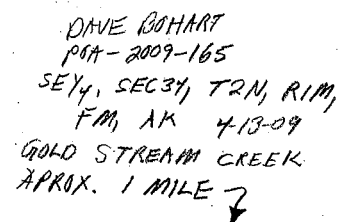 DAVE BOHART
POA-2009-165
SE1/4, SEC34, T2N, R1M,
FM, AK 4-13-09
GOLD STREAM CREEK
APROX. 1 MILE